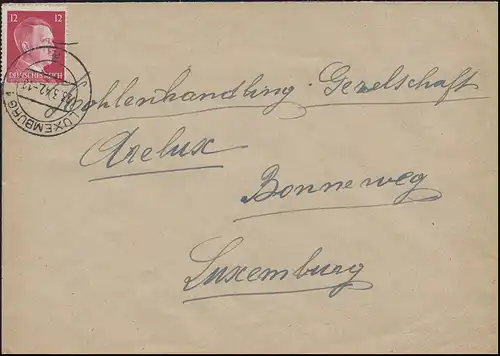 12 12
DEUTSCHES REICH
LUXEMBURG 1
Kohlenhandlung. Gezelschaft
Arelux
Bonneweg
Luxemburg